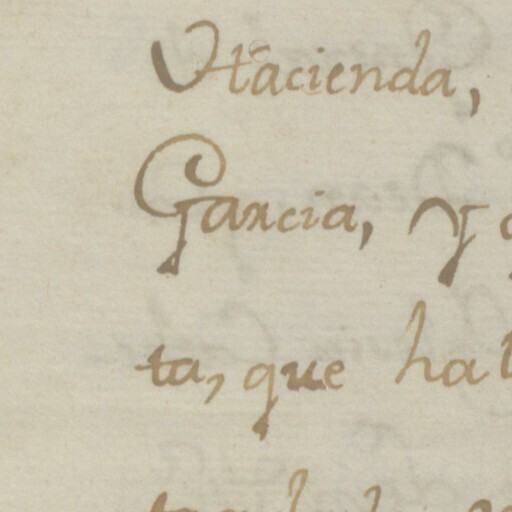 Hacienda,
Garcia, y
ta, que